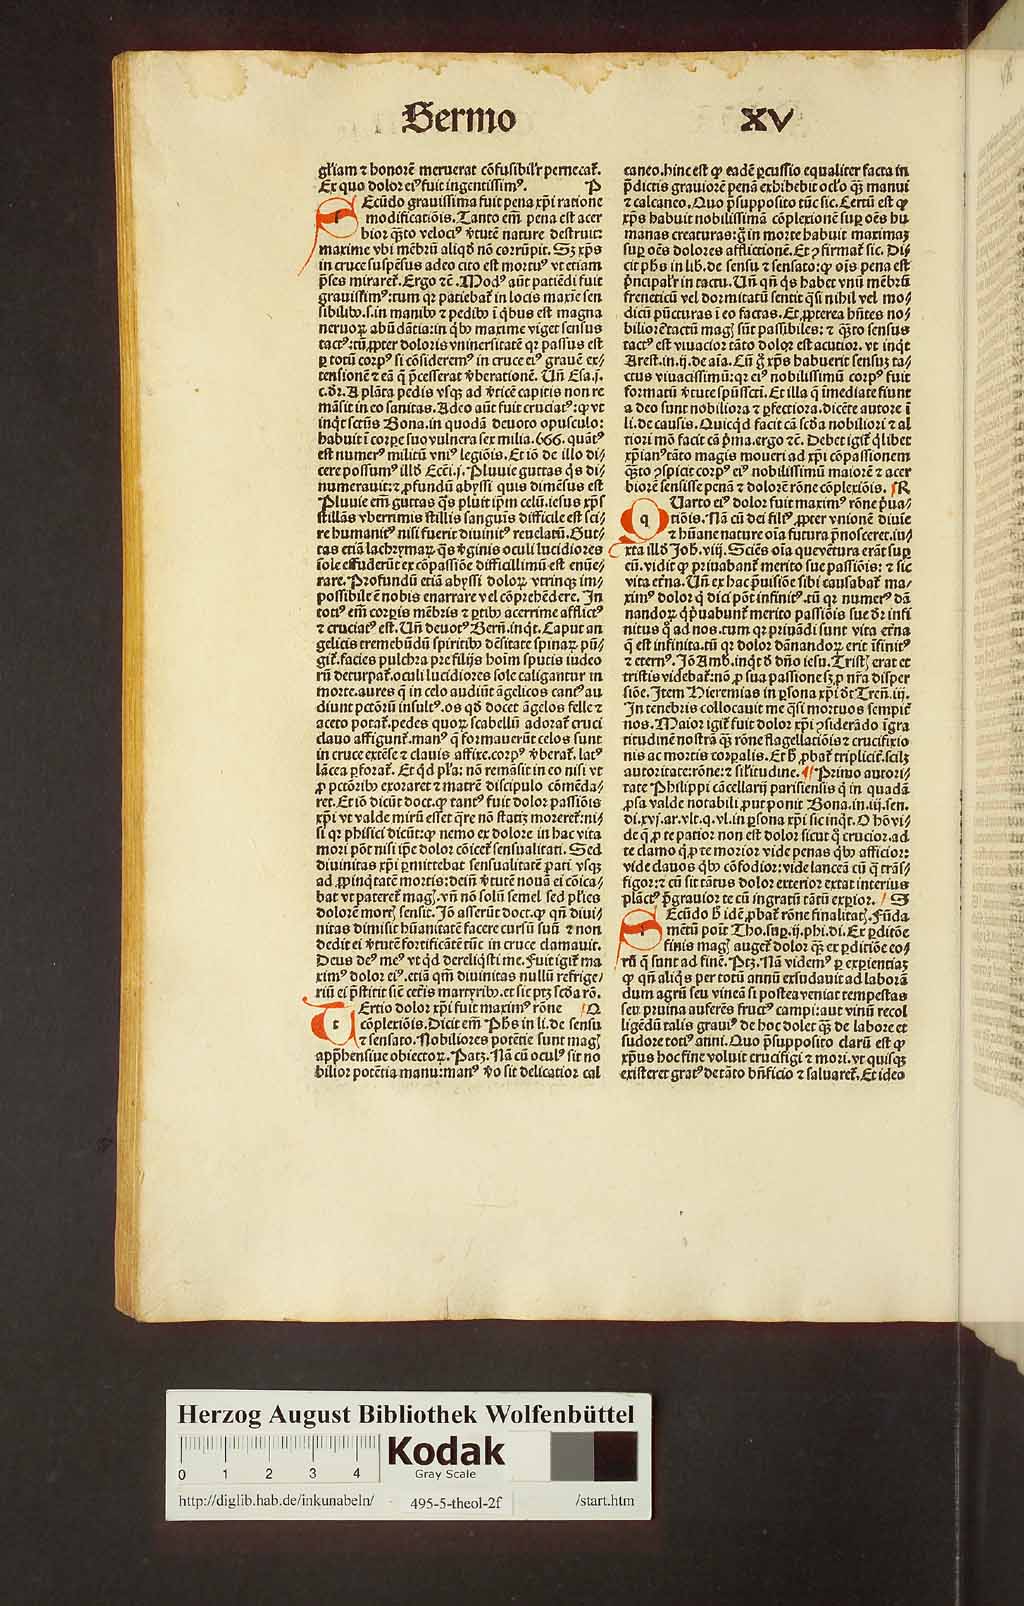 Sermo XV
gl'iam ⁊ honorē meruerat cōfusibil'r pernecat̄.
Ex quo dolor eiꝰ fuit ingentissimꝰ. P
SEcūdo grauissima fuit pena xp̄i ratione
modificatiōis. Tanto em̄ pena est acer
bior q̄sto velociꝰ v̄tutē nature destruit:
maxime vbi mēbrū aliqd̄ nō corrūpit. Sꝫ xp̄s
in cruce suspēsus adeo cito est mortuꝰ vt etiam
p̄ses miraret̄. Ergo ⁊c̄. Modꝰ aūt patiēdi fuit
grauissimꝰ: tum qꝛ patiebat̄ in locis maxīe sen
sibilibꝰ. s. in manibꝰ ⁊ pedibꝰ ī qͥbus est magna
neruoꝝ abūdātia: in qͥbꝰ maxime viget sensus
tactꝰ: tū ꝓpter doloris vniuersitatē qꝛ passus est
ꝑ totū corpꝰ si cōsideremꝰ in cruce eiꝰ grauē ex⸗
tensionē ⁊ eā q̄ p̄cesserat v̄berationē. Uñ Esa. j.
c. d̄r. A plāta pedis vsqꝫ ad v̄ticē capitis non re
māsit in eo sanitas. Adeo aūt fuit cruciatꝰ: ꝙ vt
inqͥt sctūs Bona. in quodā deuoto opusculo:
habuit ī corꝑe suo vulnera sex milia. 666. quātꝰ
est numerꝰ militū vniꝰ legiōis. Et iō de illo di⸗
cere possumꝰ illd̄ Ecc̄i. j. Pluuie guttas qͥs di⸗
numerauit: ⁊ ꝓfundū abyssi quis dimēsus est
Pluuie em̄ guttas q̄s pluit ip̄m celū. iesus xp̄s
stillās vberrimis stillis sanguīs difficile est sci⸗
re humanitꝰ nisi fuerit diuinitꝰ reuelatū. Gut⸗
tas etiā lachrymaꝝ q̄s v̄ginis oculi lucidiores
sole effuderūt ex cōpassiōe difficillimū est enūe⸗
rare. Profundū etiā abyssi doloꝝ vtrinqꝫ im⸗
possibile ē nobis enarrare vel cōprehēdere. In
totiꝰ em̄ corꝑis mēbris ⁊ ꝑtibꝰ acerrime afflictꝰ
⁊ cruciatꝰ est. Uñ deuotꝰ Berñ. inqͥt. Caput an
gelicis tremebūdū spiritibꝰ dēsitate spinaꝝ pū⸗
git̄. facies pulchra pre filijs hoīm sputis iudeo
rū deturpat̄. oculi lucidiores sole caligantur in
morte. aures q̄ in celo audiūt āgelicos cantꝰ au
diunt pctōrū insultꝰ. os qd̄ docet āgelos felle ⁊
aceto potat̄. pedes quoꝝ scabellū adorat̄ cruci
clauo affigunt̄. manꝰ q̄ formauerūt celos sunt
in cruce extēse ⁊ clauis affixe. corpꝰ v̄berat̄. latꝰ
lācea ꝑforat̄. Et qͥd pl'a: nō remāsit in eo nisi vt
ꝓ pctōribꝰ exoraret ⁊ matrē discipulo cōmēda⸗
ret. Et iō dicūt doct. ꝙ tantꝰ fuit dolor passiōis
xp̄i vt valde mirū esset q̄re nō statīꝫ moreret̄: ni⸗
si qꝛ phisici dicūt: ꝙ nemo ex dolore in hac vita
mori pōt nisi ip̄e dolor cōicet̄ sensualitati. Sed
diuinitas xp̄i ꝑmittebat sensualitatē ꝑati vsqꝫ
ad ꝓpinqͥtatē mortis: dein̄ v̄tutē nouā ei cōica⸗
bat vt pateret̄ magꝭ. vñ nō solū semel sed pl'ies
dolorē mortꝭ sensit. Jō asserūt doct. ꝙ qñ diui⸗
nitas dimisit hūanitatē facere cursū suū ⁊ non
dedit ei v̄tutē fortificātē tūc in cruce clamauit.
Deus deꝰ meꝰ vt qd̄ dereliqͥsti me. Fuit igit̄ ma
ximꝰ dolor eiꝰ. etiā qm̄ diuinitas nullū refrige⸗
riū ei p̄stitit sic̄ cet̄is martyribꝰ. et sic ptꝫ scd̄a rō.
TErtio dolor xp̄i fuit maximꝰ rōne Q
cōplexiōis. Dicit em̄ Phs̄ in li. de sensu
⁊ sensato. Nobiliores potētie sunt magꝭ
app̄hensiue obiectoꝝ. Patꝫ. Nā cū oculꝰ sit no
bilior potētia manu: manꝰ v̄o sit delicatior cal
caneo. hinc est ꝙ eadē ꝑcussio equaliter facta in
p̄dictis grauiorē penā exhibebit ocl'o q̄ꝫ manui
⁊ calcaneo. Quo p̄supposito tūc sic. Certū est ꝙ
xp̄s habuit nobilissimā cōplexionē suꝑ oēs hu
manas creaturas: g̊ in morte habuit maximaꝫ
suꝑ oēs dolores afflictionē. Et ꝯfirmat̄ sic. Di⸗
cit phs̄ in lib. de sensu ⁊ sensato: ꝙ oīs pena est
p̄ncipal'r in tactu. Uñ qñ qͥs habet vnū mēbrū
freneticū vel dormitatū sentit q̄si nihil vel mo⸗
dicū pūcturas ī eo factas. Et ꝓpterea hn̄tes no⸗
biliorē tactū magꝭ sūt passibiles: ⁊ q̄sto sensus
tactꝰ est viuacior tāto dolor est acutior. vt inqͥt
Arest. in. ij. de aīa. Cū g̊ xp̄s habuerit sensuꝫ ta⸗
ctus viuacissimū: qꝛ eiꝰ nobilissimū corpꝰ fuit
formatū v̄tute sp̄ussc̄ti. Et illa q̄ īmediate fiunt
a deo sunt nobiliora ⁊ ꝑfectiora. dicēte autore ī
li. de causis. Quicqͥd facit cā scd̄a nobiliori ⁊ al
tiori mō facit cā p̄ma. ergo ⁊c̄. Debet igit̄ qͥlibet
xp̄ianꝰ tāto magis moueri ad xp̄i cōpassionem
q̄sto ꝯspicit corpꝰ eiꝰ nobilissimū maiorē ⁊ acer
biorē sensisse penā ⁊ dolorē rōne cōplexiōis. R
QUarto eiꝰ dolor fuit maximꝰ rōne p̄ua⸗
tiōis. Nā cū dei filiꝰ ꝓpter vnionē diuie
⁊ hūane nature oīa futura p̄nosceret. iu⸗
xta illd̄ Joh̄. viij. Sciēs oīa que vētura erāt suꝑ
eū. vidit ꝙ priuabant̄ merito sue passiōis: ⁊ sic
vita etr̄na. Uñ ex hac p̄uisiōe sibi causabat̄ ma⸗
ximꝰ dolor q̄ dici pōt infinitꝰ. tū qꝛ numerꝰ dā
nandoꝝ q̄ p̄uabunt̄ merito passiōis sue d̄r infi
nitus qͦ ad nos. tum qꝛ priuādi sunt vita etr̄na
q̄ est infinita. tū qꝛ dolor dānandoꝝ erit īfinitꝰ
⁊ eternꝰ. Jō Amb̄. inqͥt d̄ dn̄o iesu. Tristꝭ erat et
tristis videbat̄: nō ꝓ sua passione sꝫ ꝓ nr̄a disper
siōe. Item Hieremias in ꝑsona xp̄i dt̄ Treñ. iij.
In tenebris collocauit me q̄si mortuos sempit̄
nos. Maior igit̄ fuit dolor xp̄i ꝯsiderādo īgra
titudinē nostrā q̄ꝫ rōne flagellatiōis ⁊ crucifixio
nis ac mortis corꝑalis. Et h̄ ꝓbat̄ triplicit̄. scilꝫ
autoritate: rōne: ⁊ silītudine. ¶ Primo autori⸗
tate Philippi cācellarij parisiensis q̄ in quadā
ꝓsa valde notabili ꝓut ponit Bona. in. iij. sen.
di. xvj. ar. vlt. q. vl. in ꝑsona xp̄i sic inqͥt. O hō vi⸗
de q̄ ꝓ te patior non est dolor sicut q̊ crucior. ad
te clamo q̄ ꝓ te morior vide penas qͥbꝰ afficior:
vide clauos qͥbꝰ cōfodior: vide lanceā cū q̄ trās⸗
figor: ⁊ cū sit tātus dolor exterior extat interius
plāctꝰ p̄grauior te cū ingratū tātū exꝑior. S
SEcūdo h̄ idē ꝓbat̄ rōne finalitatꝭ. Fūda
mētū poīt Tho. suꝑ. ij. phi. di. Ex ꝑditiōe
finis magꝭ auget̄ dolor q̄ꝫ ex ꝑditiōe eo⸗
rū q̄ sunt ad finē. Ptꝫ. Nā videmꝰ ꝑ exꝑientiaꝫ
ꝙ qñ aliqͥs per totū annū exsudauit ad laborā
dum agrū seu vineā si postea veniat tempestas
seu pruina auferēs fructꝰ campi: aut vinū recol
ligēdū talis grauiꝰ de hoc dolet q̄ꝫ de labore et
sudore totiꝰ anni. Quo p̄supposito clarū est ꝙ
xp̄us hoc fine voluit crucifigi ⁊ mori. vt quisqꝫ
existeret gratꝰ de tāto bn̄ficio ⁊ saluaret̄. Et ideo
Herzog August Bibliothek Wolfenbüttel
0 1 2 3 4
Kodak
Gray Scale
http://diglib.hab.de/inkunabeln/ 495-5-theol-2f /start.htm